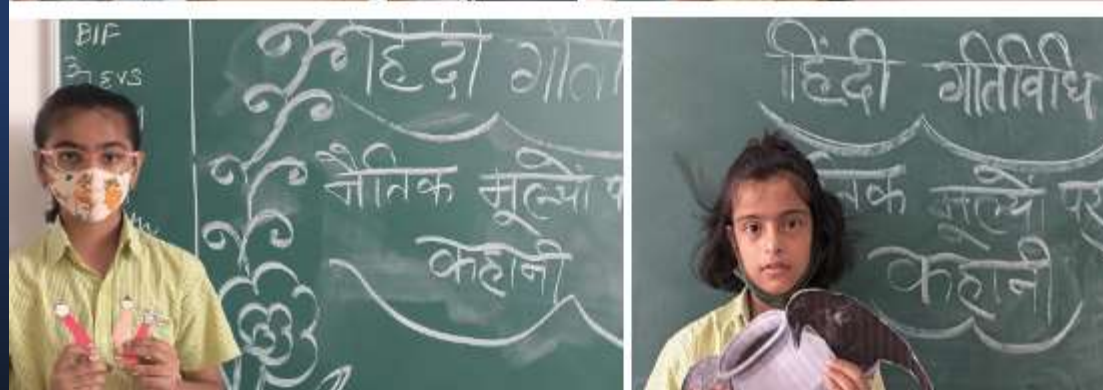 BIF
EVS
हिंदी
नैतिक मूल्यों
कहानी
हिंदी गतिविधि
मूल्यों पर
कहानी